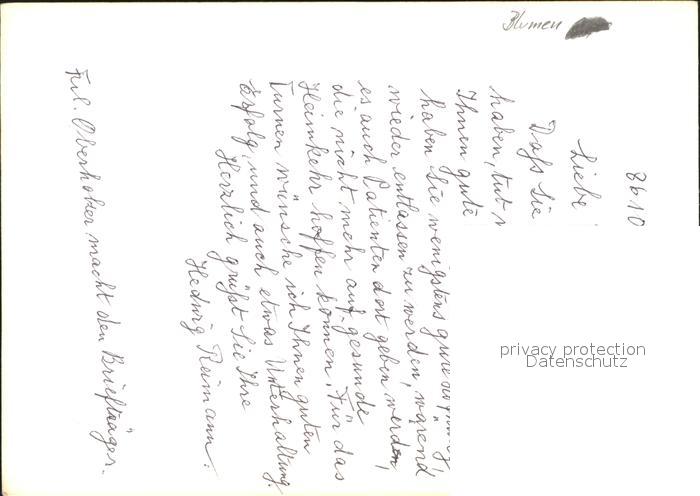 Blumen
8610
Liebe
Daß Sie
haben, tut
Ihnen gute
haben Sie wenigstens gute
wieder entlassen zu werden, wärend
es auch Patienten dort geben werden,
die nicht mehr auf gesunde
Heimkehr hoffen können. Für das
Turnen wünsche ich Ihnen guten
Erfolg, und auch etwas Unterhaltung.
Herzlich grüßt Sie Ihre
Hedwig Reimann.
Frl. Oberholzer macht den Briefträger.
privacy protection
Datenschutz